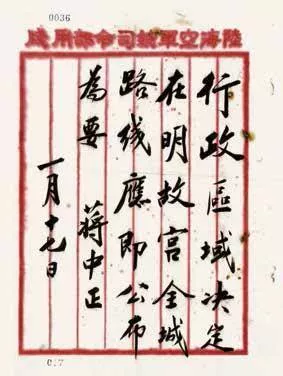 0036
陸海空軍總司令部用牋
行政區域决定
在明故宫全城
路线應即公布
為要 蒋中正
一月十七日